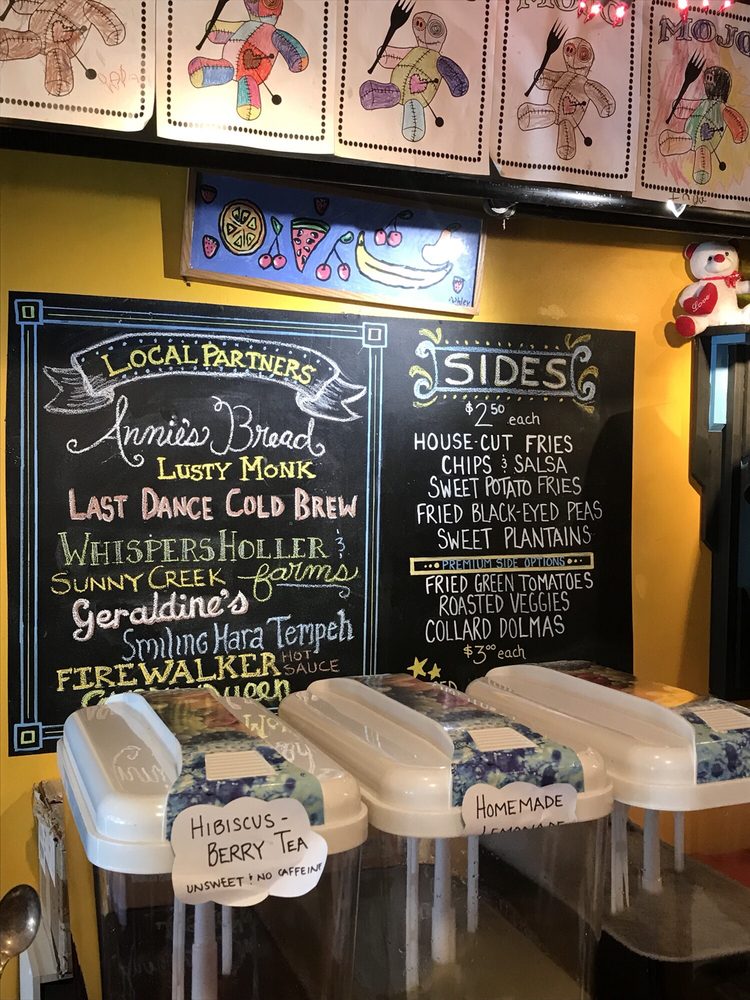 MOJO
MOJO
LOCAL PARTNERS
Annie's Bread
LUSTY MONK
LAST DANCE COLD BREW
WHISPERSHOLLER &
SUNNY CREEK farms
Geraldine's
Smiling Hara Tempeh
FIREWALKER HOT SAUCE
Queen
SIDES
$2.50 each
HOUSE-CUT FRIES
CHIPS & SALSA
SWEET POTATO FRIES
FRIED BLACK-EYED PEAS
SWEET PLANTAINS
PREMIUM SIDE OPTIONS
FRIED GREEN TOMATOES
ROASTED VEGGIES
COLLARD DOLMAS
$3.00 each
Love
HIBISCUS-
BERRY TEA
UNSWEET & NO CAFFEINE
HOMEMADE
LEMONADE